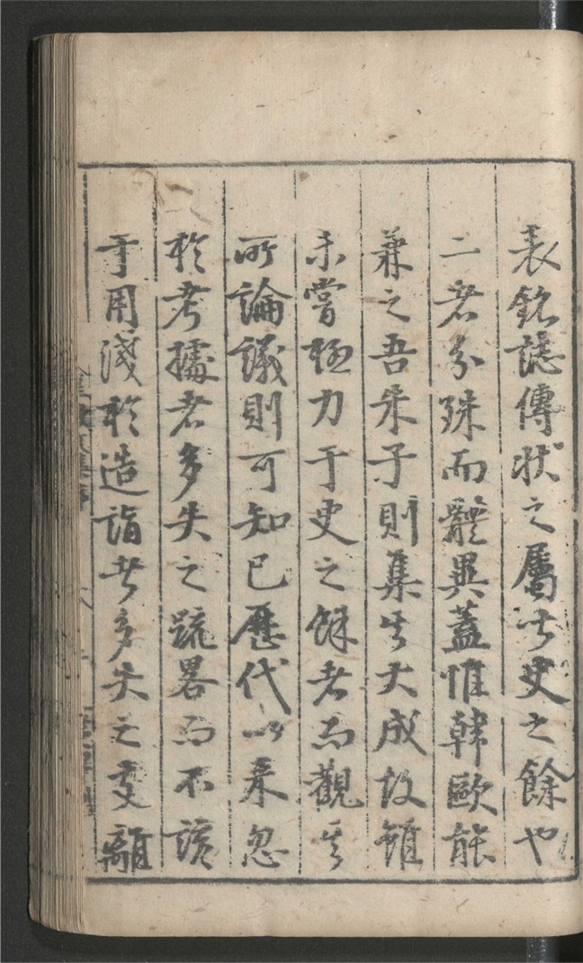 表銘誌傳狀之屬皆史之餘也
二者分殊而體異蓋惟韓歐能
兼之吾朱子則集其大成故雖
未嘗極力于史之餘者而觀其
所論議則可知已歷代以來忽
於考據者多失之䟽畧而不該
于用淺於造詣者多失之支離